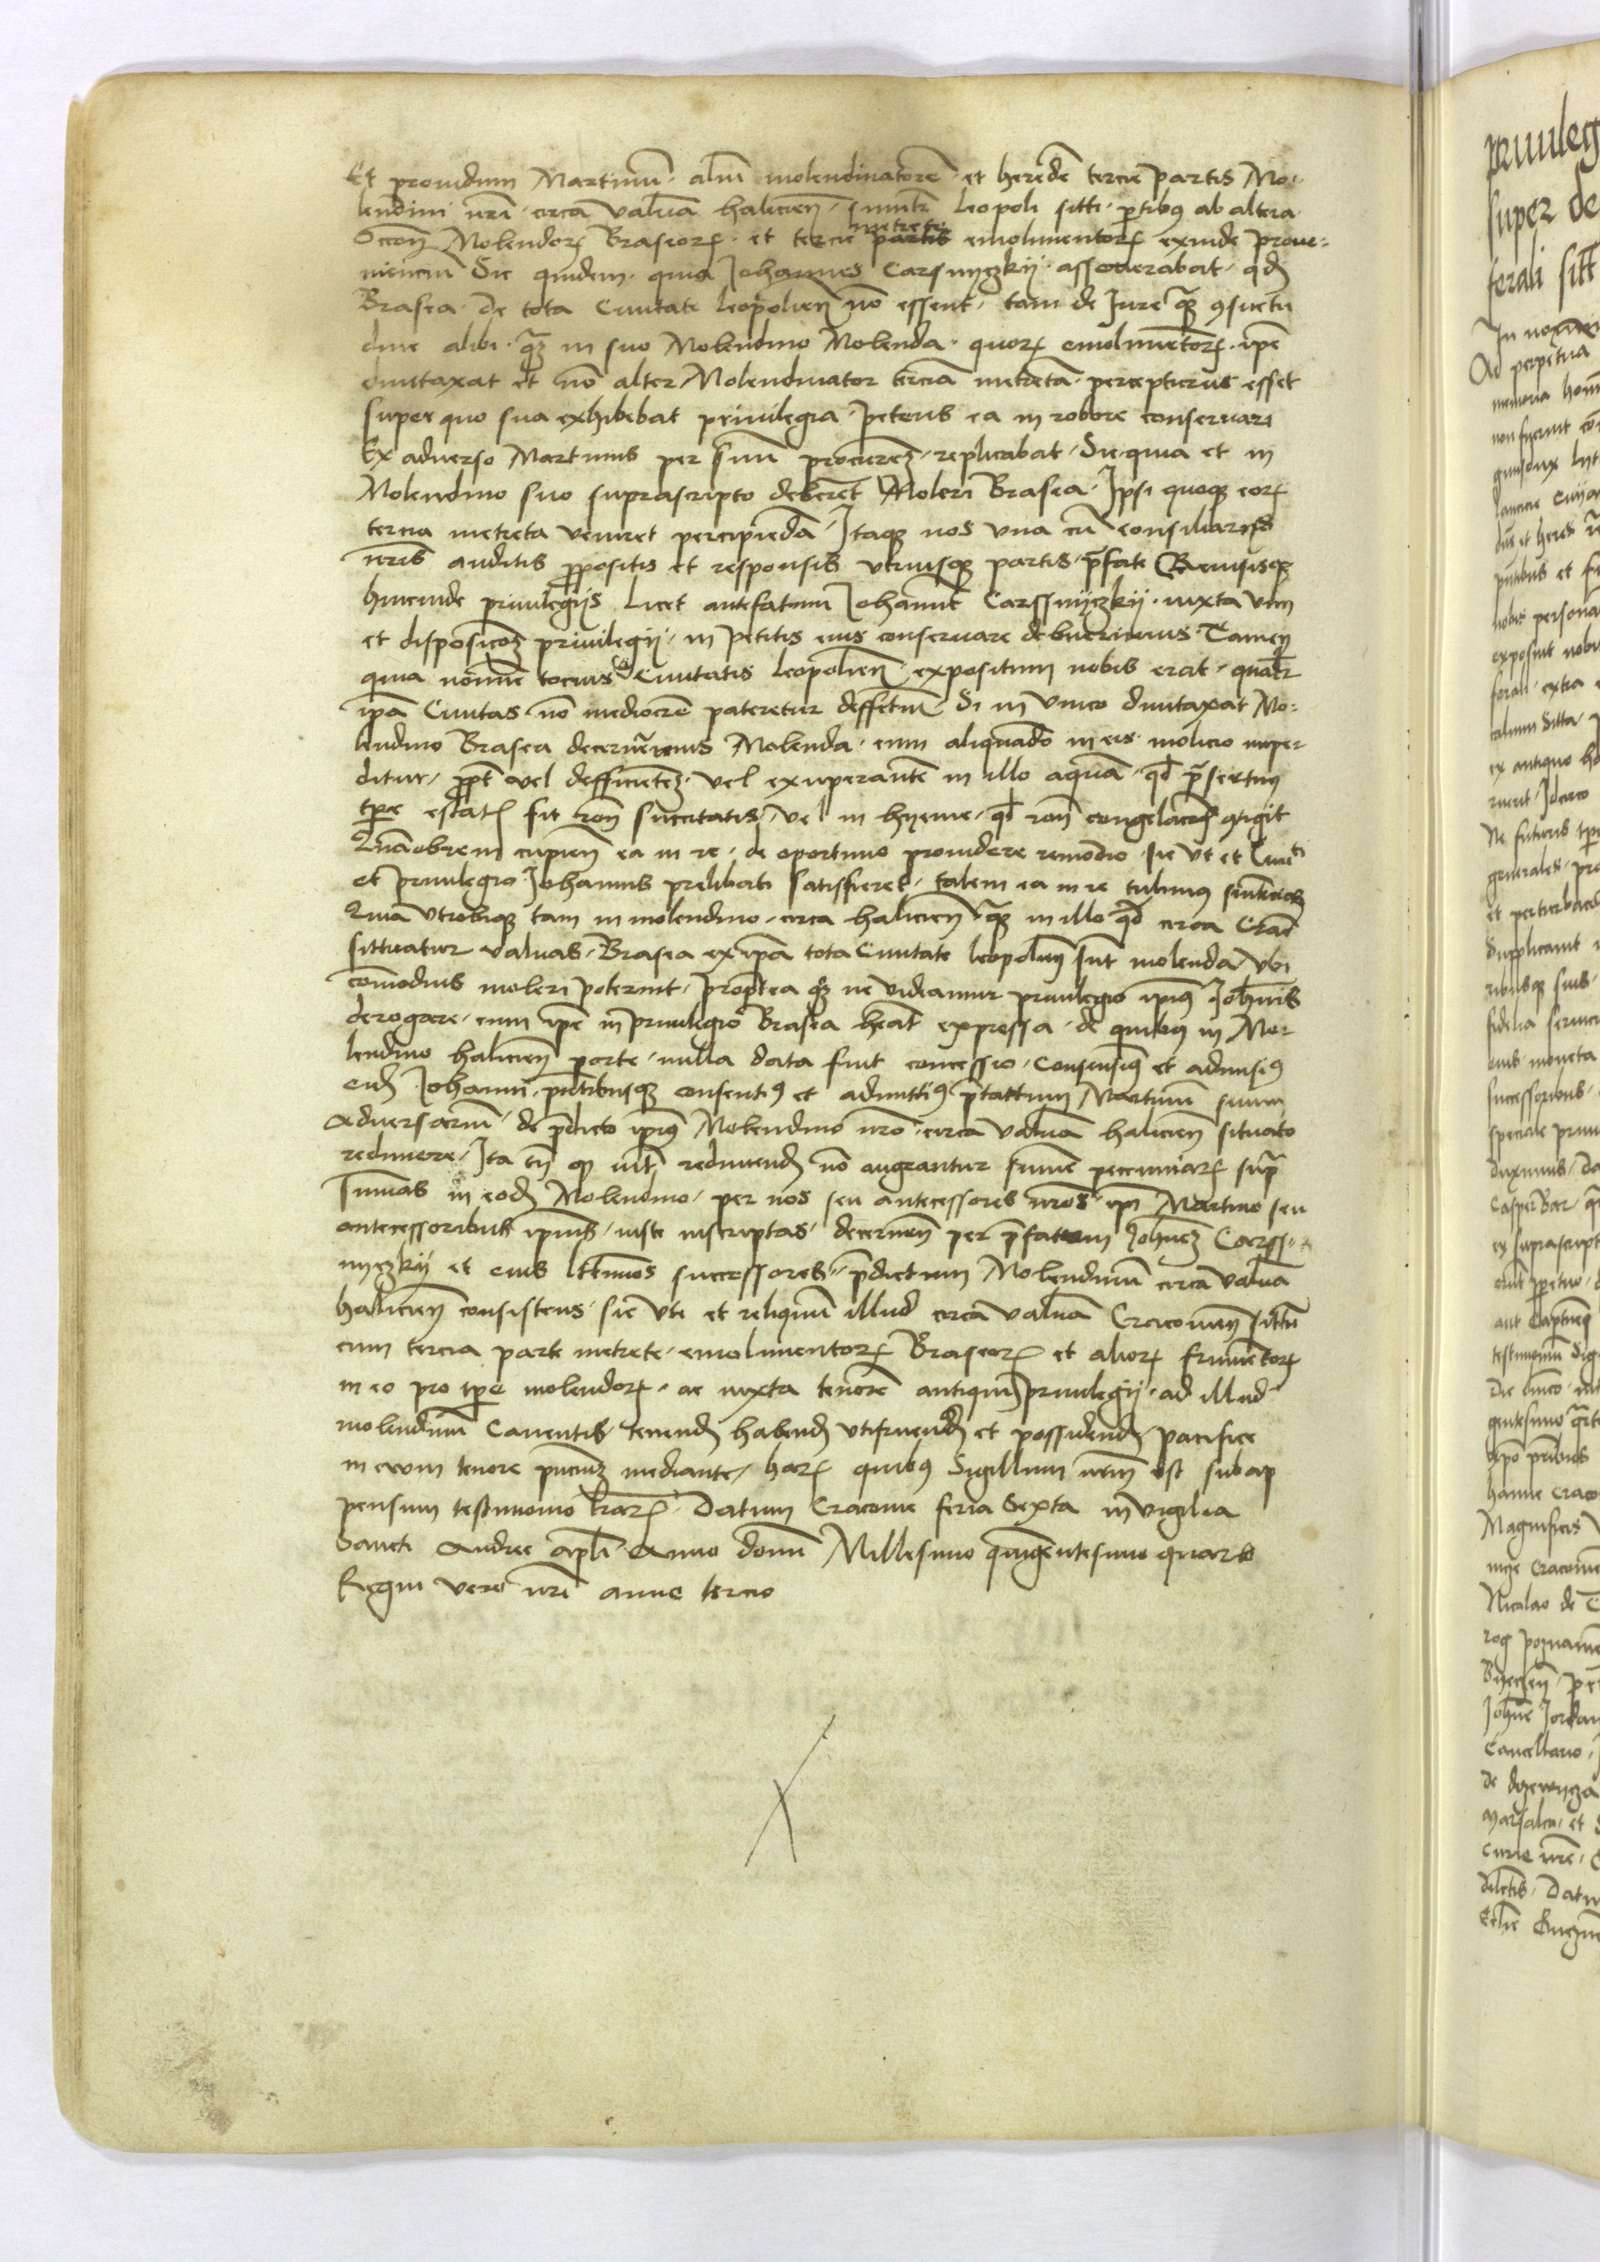 Et prouidum Martinū aliū molendinatorē et heredē tercie partis Mo-
lendini nr̄i circa valuā halicien̄ similr̄ Leopoli sitti ꝑtibus ab altera
Occōe Molendoꝝ Braseoꝝ et tercie partis metrete emolimentoꝝ exinde proue-
nienciū Sic quidem quia Johannes Carsnyczkij asseuerabat qd̄
Brasea de tota Ciuitate leopolien̄ nō essent tam de Jure qᷓ ꝯsuetu
dine alibi qᷓ in suo Molendino Molenda quoꝝ emolimētoꝝ ipē
duntaxat et nō alter Molendinator terciā metretā percepturus esset
super quo sua exhibebat priuilegia petens ea in robore conseruari
Ex aduerso Martinus per suū procurꝰ replicabat Sic quia et in
Molendino suo suprascripto deberēt Moleri Brasea Ipsi quoqꝫ eoꝝ
tercia metreta veniret percipiēda Itaqꝫ nos vna cū consiliarijs
nr̄is auditis ꝓpositis et responsis vtriusqꝫ partis p̄fate Reuisisqꝫ
hincinde priuilegijs Licet antefatum Johannē Carssnyczkij iuxta vim
et disposicōꝫ priuilegij in petitis eius conseruare debuerimus Tamen
quia nomine tocius Ciuitatis Leopolien̄ expositum nobis erat qualr̄
ipā Ciuitas nō mediocrē pateretur deffectū Si in vnico duntaxat Mo-
lendino Brasea decerneremus Molenda cum aliquando in eis molicio impe-
ditur ꝓpt̄ vel defficientē vel exuperantē in illo aquam qd̄ p̄sertim
tꝑe estatꝭ fit rōne siccitatis vel in hyeme qd̄ rōne congelacōis ꝯtigit
Quāobrem cupien̄ ea in re de oportuno prouidere remedio sic vt et Ciuiti
et priuilegio Johannis prelibati satisfieret talem ea in re tulimus sentenciā
Quia vtrobiqꝫ tam in molendino circa halicien̄ qᷓ in illo qd̄ circa Crac̄
sittuatur valuas Brasea ex ipā tota Ciuitate leopolien̄ sint molenda vbi
comodius moleri poterint Propterea qꝫ ne videamur priuilegio ipius Joh̄nis
derogare cum ipē in priuilegio Brasea habeāt expressa de quibus in Mo-
lendino halicien̄ porte nulla data fuit concessio Consensimus et admisimus
eidē Johanni p̄ntibusqꝫ consentimus et admittimus p̄tactum Martinū suum
aduersariū de p̄dicto ipius Molendino nr̄o circa valuā halicien̄ situato
redimere Ita tn̄ qꝫ redimendē nō augeantur sum̄e peccuniaꝝ supᷓ
sum̄as in eodē Molendino per nos seu antecessores nr̄os ipi Martino seu
antecessoribus ipius iuste inscriptas decernen̄ per p̄fatum Joh̄nem Carss-
nyczkij et eius ltt̄imos successores p̄dictum Molendinū circa valuā
halicien̄ consistens sic vti et reliquū illud circa valuā Cracouien̄ sittū
cum tercia parte metrete emolimentoꝝ Braseoꝝ et alioꝝ frumētoꝝ
in eo pro tꝑe molendoꝝ ac iuxta tenorē antiqui priuilegij ad illud
molendinū Cauentis tenend̄ habend̄ vtifruend̄ et possidend̄ pacifice
in euum tenore p̄nciū mediante Harꝝ quibus Sigillum nr̄m est subap
pensum testimonio lr̄aꝝ Datum Cracouie feria Sexta in vigilia
Sancti Andree apl̄i Anno domi Millesimo quīgentesimo quarto
Regni vero nr̄i anno tercio